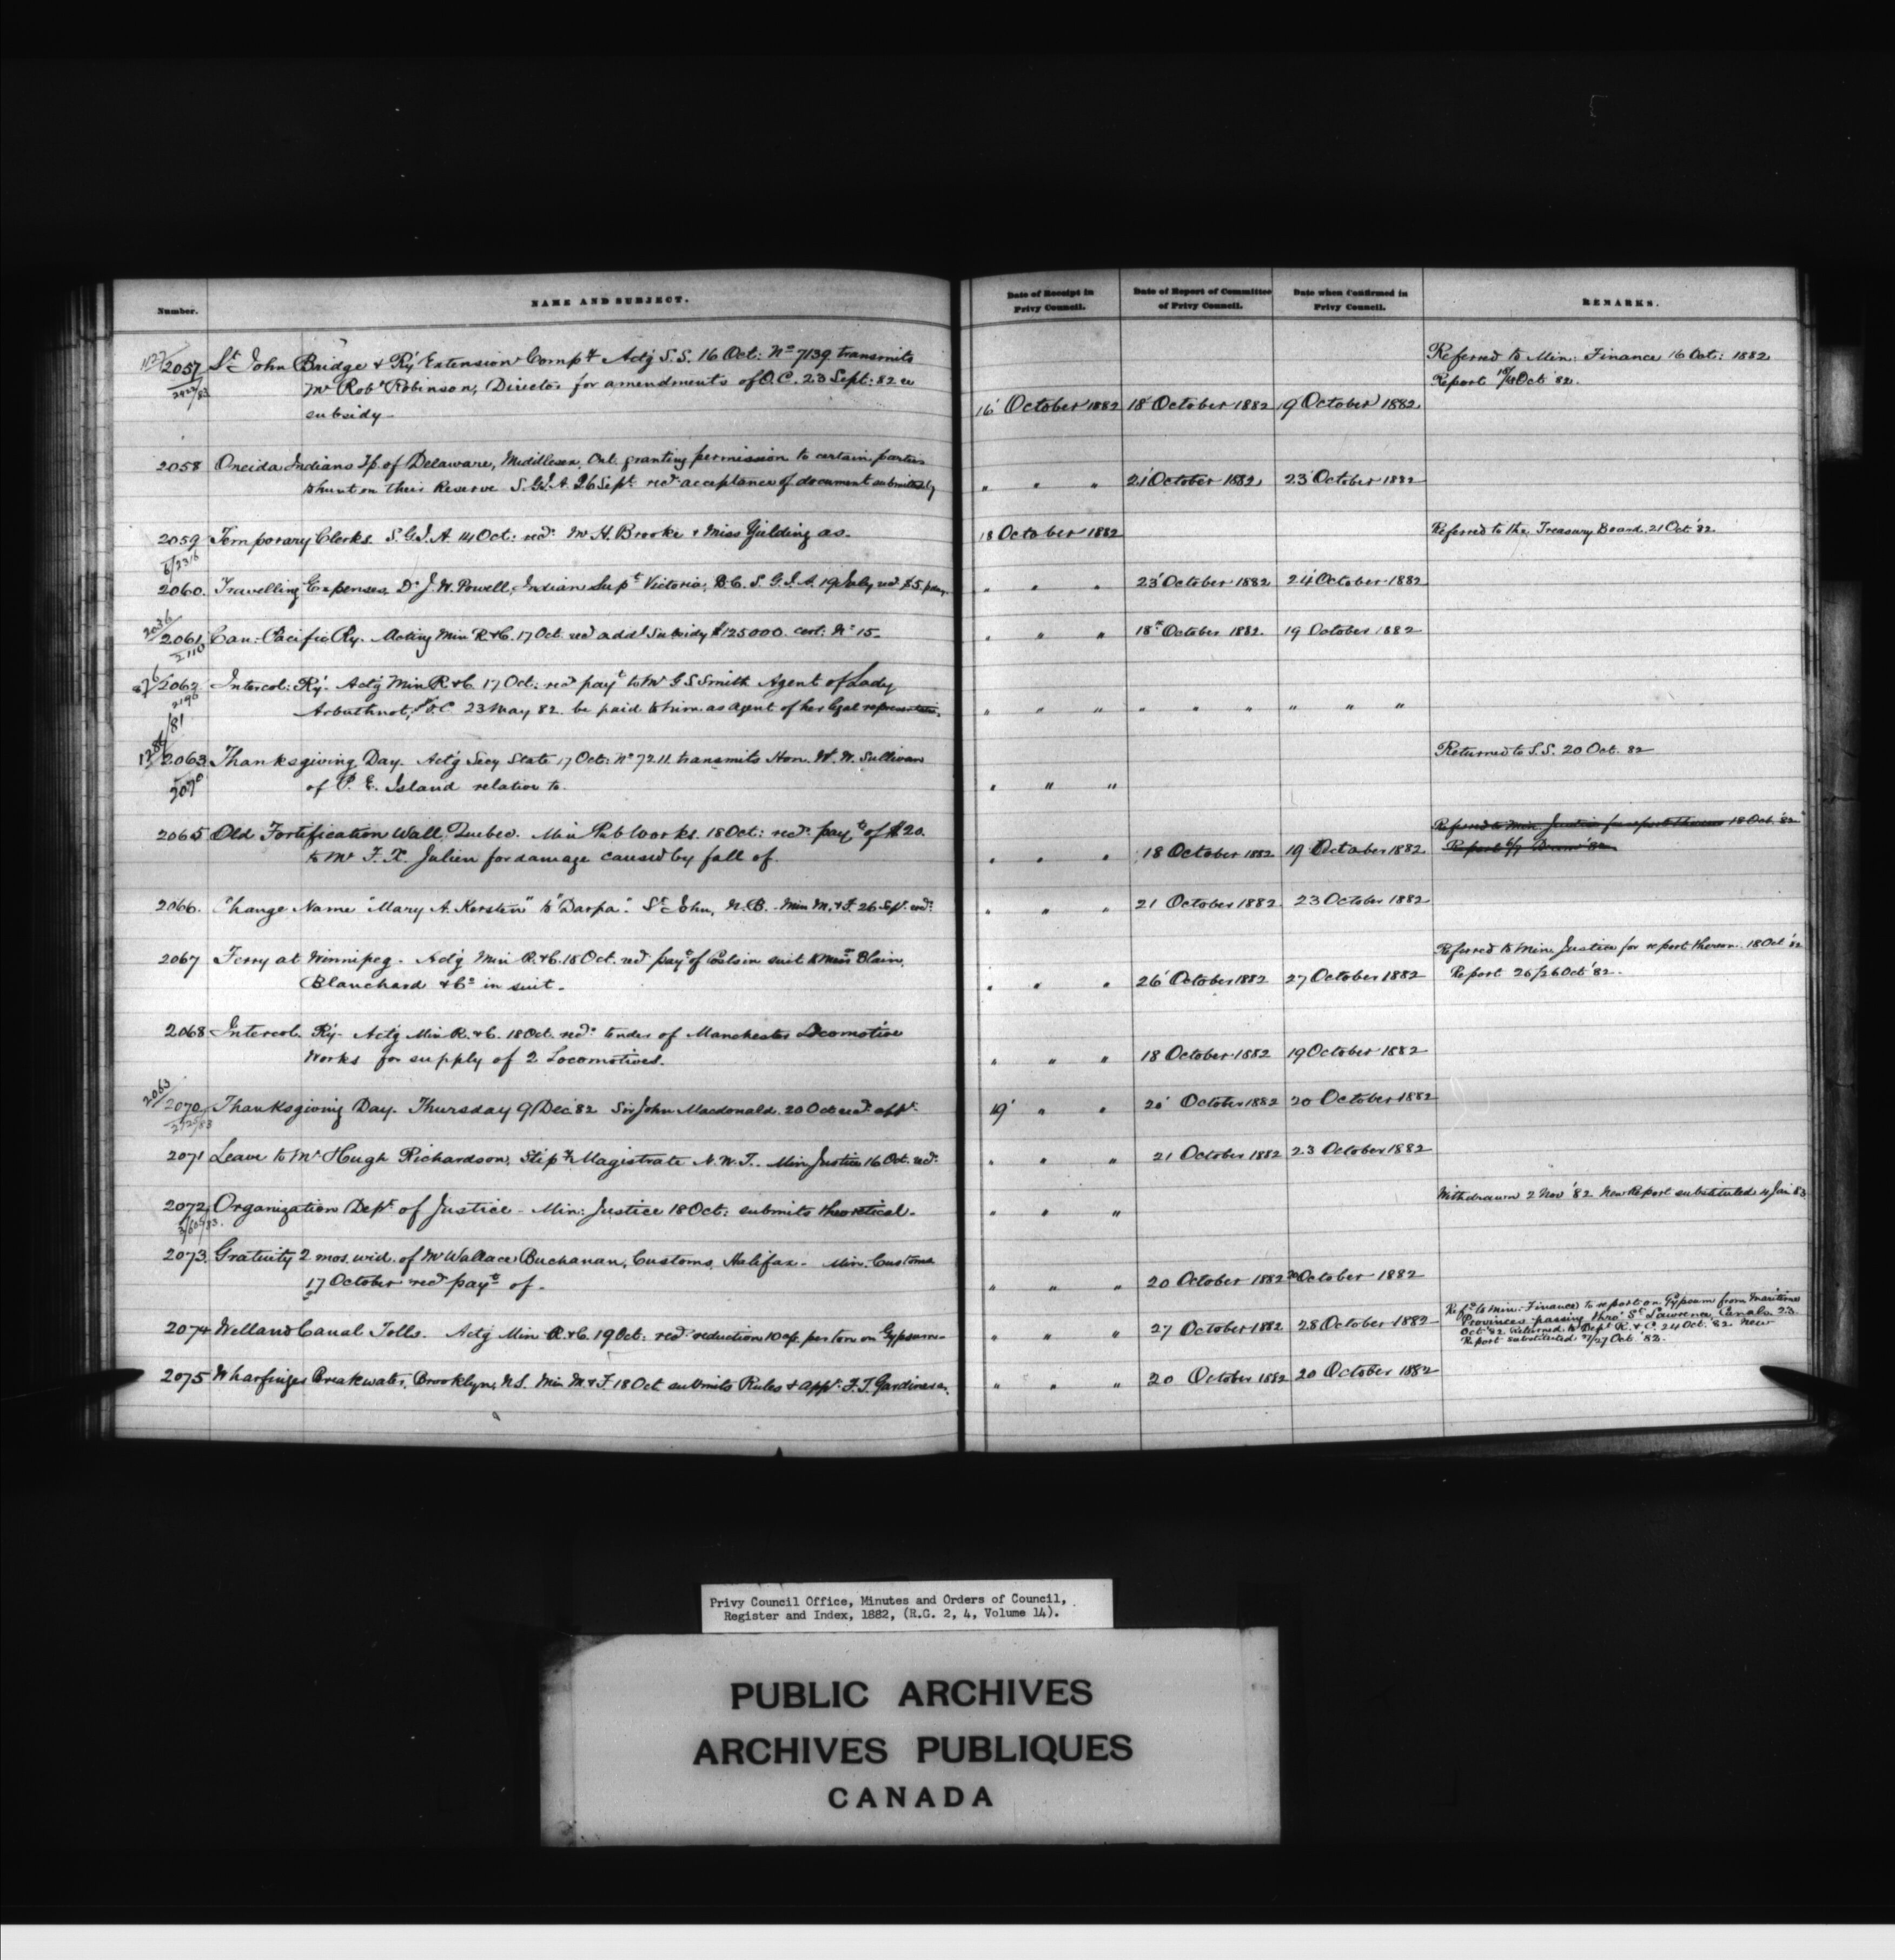 Number.
NAME AND SUBJECT.
Date of Receipt in
Privy Council.
Date of Report of Committee
of Privy Council.
Date when Confirmed in
Privy Council.
REMARKS.
2057 St John Bridge & Ry Extension Compy Actg S.S. 16 Oct: No 7139 transmits
Mr Robt Robinson, Director for amendments of O.C. 23 Sept: 82 re
subsidy
16 October 1882 18 October 1882 19 October 1882
Referred to Min: Finance 16 Oct: 1882
Report Oct '82.
2058 Oneida Indians Tp. of Delaware, Middlesex, Ont. granting permission to certain parties
to hunt on their Reserve S.G.I.A. 26 Sept. recd acceptance of document submitted by
" " " 21 October 1882 23 October 1882
2059 Temporary Clerks. S.G.I.A. 14 Oct: recd: Mr H. Brooke & Miss Yielding as.
18 October 1882
Referred to the Treasury Board. 21 Oct '82.
2060. Travelling Expenses, Dr J. W. Powell, Indian Supt Victoria, B.C. S.G.I.A. 19 July recd $5 p day.
" " " 23 October 1882 24 October 1882
2061 Can: Pacific Ry. Acting Min R.&C. 17 Oct recd addl Subsidy $125000. cert: No 15.
2110
" " " 18 October 1882. 19 October 1882
2062 Intercol: Ry. Actg Min R.&C. 17 Oct: recd payt to Mr G S Smith Agent of Lady
Arbuthnot, O.C. 23 May 82. be paid to him as agent of her legal representative.
" " " " " " " " "
2063 Thanksgiving Day. Actg Secy State 17 Oct: No 7211 transmits Hon. W. W. Sullivan
2070
of P. E. Island relative to.
" " "
Returned to S.S. 20 Oct. 82
2065 Old Fortification Wall, Quebec. Min Pub Works. 18 Oct: recd: payt of $20.
to Mr F. X. Julien for damage caused by fall of.
" " " 18 October 1882 19 October 1882
Referred to Min Justice for report thereon 18 Oct. '82
2066. Change Name "Mary A. Kersten" to "Darpa". St John, N.B. Min M.&F. 26 Sept. recd:
" " " 21 October 1882 23 October 1882
2067 Ferry at Winnipeg. Actg Min R.&C. 18 Oct. recd payt of Costs in suit to Messrs Blain,
Blanchard & Co in suit.
" " " 26 October 1882 27 October 1882
Referred to Min Justice for report thereon. 18 Oct '82
Report 26/26 Oct '82.
2068 Intercol. Ry. Actg Min R.&C. 18 Oct. recd: tender of Manchester Locomotive
Works for supply of 2 Locomotives.
" " " 18 October 1882 19 October 1882
2063
2070 Thanksgiving Day. Thursday 9 Dec 82 Sir John Macdonald. 20 Oct recd: appt.
19 " " 20 October 1882 20 October 1882
2071 Leave to Mr Hugh Richardson, Stipy Magistrate N.W.T. Min Justice 16 Oct. recd:
" " " 21 October 1882 23 October 1882
2072 Organization Dept of Justice. Min: Justice 18 Oct: submits theoretical.
" " "
Withdrawn 2 Nov '82 New Report substituted 4 Jan 83
2073. Gratuity 2 mos. wid. of Mr Wallace Buchanan, Customs, Halifax. Min. Customs
17 October recd payt of.
" " " 20 October 1882 20 October 1882
2074 Welland Canal Tolls. Actg Min R.&C. 19 Oct: recd reduction 10 cts per ton on Gypsum.
" " " 27 October 1882 28 October 1882
Refd to Min: Finance to report on Gypsum from Maritime
Provinces passing thro' St Lawrence Canals. 23
Oct '82. Returned to Dept R.&C. 24 Oct. '82 New
Report substituted 27/27 Oct. '82.
2075 Wharfinger Breakwater, Brooklyn, N.S. Min M.&F. 18 Oct submits Rules & appt. F.T. Gardiner as.
" " " 20 October 1882 20 October 1882
Privy Council Office, Minutes and Orders of Council,
Register and Index, 1882, (R.G. 2, 4, Volume 14).
PUBLIC ARCHIVES
ARCHIVES PUBLIQUES
CANADA